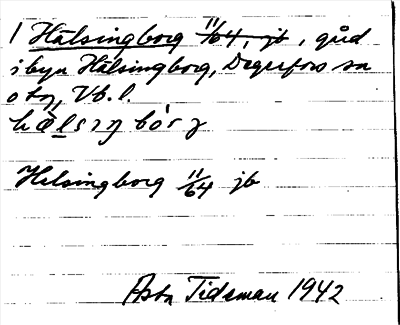 1 Hälsingborg 11/64, jb, gård
i byn Hälsingborg, Degerfors sn
o tg, Vb. l.
hæ̀lsiŋbór̨
Helsingborg 11/64 jb
Asta Tidsman 1942